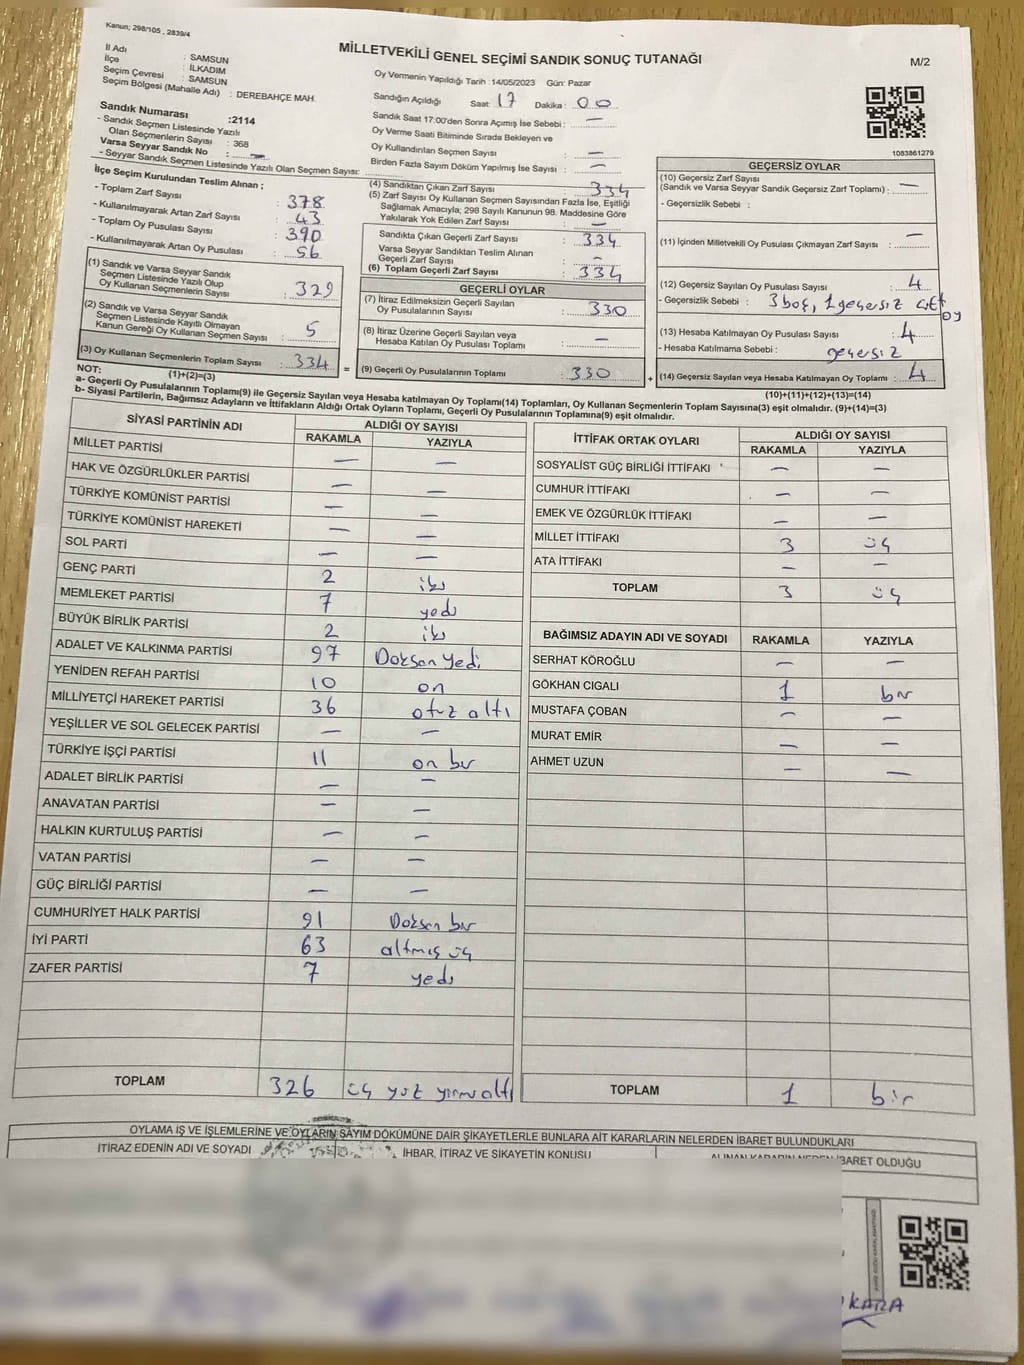 Kanun; 298/105 , 2839/4
MİLLETVEKİLİ GENEL SEÇİMİ SANDIK SONUÇ TUTANAĞI
M/2
İl Adı : SAMSUN
İlçe : İLKADIM
Seçim Çevresi : SAMSUN
Seçim Bölgesi (Mahalle Adı) : DEREBAHÇE MAH.
Sandık Numarası :2114
- Sandık Seçmen Listesinde Yazılı
Olan Seçmenlerin Sayısı : 368
Varsa Seyyar Sandık No : —
- Seyyar Sandık Seçmen Listesinde Yazılı Olan Seçmen Sayısı:
İlçe Seçim Kurulundan Teslim Alınan ;
- Toplam Zarf Sayısı : 378
- Kullanılmayarak Artan Zarf Sayısı : 43
- Toplam Oy Pusulası Sayısı : 390
- Kullanılmayarak Artan Oy Pusulası : 56
(1) Sandık ve Varsa Seyyar Sandık
Seçmen Listesinde Yazılı Olup
Oy Kullanan Seçmenlerin Sayısı : 329
(2) Sandık ve Varsa Seyyar Sandık
Seçmen Listesinde Kayıtlı Olmayan
Kanun Gereği Oy Kullanan Seçmen Sayısı : 5
(3) Oy Kullanan Seçmenlerin Toplam Sayısı : 334 =
(1)+(2)=(3)
Oy Vermenin Yapıldığı Tarih :14/05/2023 Gün: Pazar
Sandığın Açıldığı Saat: 17 Dakika : 00
Sandık Saat 17:00'den Sonra Açımış İse Sebebi : —
Oy Verme Saati Bitiminde Sırada Bekleyen ve
Oy Kullandırılan Seçmen Sayısı : —
Birden Fazla Sayım Döküm Yapılmış İse Sayısı : —
(4) Sandıktan Çıkan Zarf Sayısı : 334
(5) Zarf Sayısı Oy Kullanan Seçmen Sayısından Fazla İse, Eşitliği
Sağlamak Amacıyla; 298 Sayılı Kanunun 98. Maddesine Göre
Yakılarak Yok Edilen Zarf Sayısı : —
Sandıkta Çıkan Geçerli Zarf Sayısı : 334
Varsa Seyyar Sandıktan Teslim Alınan
Geçerli Zarf Sayısı : —
(6) Toplam Geçerli Zarf Sayısı : 334
GEÇERLİ OYLAR
(7) İtiraz Edilmeksizin Geçerli Sayılan
Oy Pusulalarının Sayısı : 330
(8) İtiraz Üzerine Geçerli Sayılan veya
Hesaba Katılan Oy Pusulası Toplamı : —
(9) Geçerli Oy Pusulalarının Toplamı : 330 +
1083861279
GEÇERSİZ OYLAR
(10) Geçersiz Zarf Sayısı
(Sandık ve Varsa Seyyar Sandık Geçersiz Zarf Toplamı) : —
- Geçersizlik Sebebi :
(11) İçinden Milletvekili Oy Pusulası Çıkmayan Zarf Sayısı : —
(12) Geçersiz Sayılan Oy Pusulası Sayısı : 4
- Geçersizlik Sebebi : 3 boş, 1 geçersiz çift oy
(13) Hesaba Katılmayan Oy Pusulası Sayısı : 4
- Hesaba Katılmama Sebebi : geçersiz
(14) Geçersiz Sayılan veya Hesaba Katılmayan Oy Toplamı : 4
(10)+(11)+(12)+(13)=(14)
NOT:
a- Geçerli Oy Pusulalarının Toplamı(9) ile Geçersiz Sayılan veya Hesaba katılmayan Oy Toplamı(14) Toplamları, Oy Kullanan Seçmenlerin Toplam Sayısına(3) eşit olmalıdır. (9)+(14)=(3)
b- Siyasi Partilerin, Bağımsız Adayların ve İttifakların Aldığı Ortak Oyların Toplamı, Geçerli Oy Pusulalarının Toplamına(9) eşit olmalıdır.
SİYASİ PARTİNİN ADI ALDIĞI OY SAYISI
RAKAMLA YAZIYLA
MİLLET PARTİSİ — —
HAK VE ÖZGÜRLÜKLER PARTİSİ — —
TÜRKİYE KOMÜNİST PARTİSİ — —
TÜRKİYE KOMÜNİST HAREKETİ — —
SOL PARTİ — —
GENÇ PARTİ 2 iki
MEMLEKET PARTİSİ 7 yedi
BÜYÜK BİRLİK PARTİSİ 2 iki
ADALET VE KALKINMA PARTİSİ 97 Doksan yedi
YENİDEN REFAH PARTİSİ 10 on
MİLLİYETÇİ HAREKET PARTİSİ 36 otuz altı
YEŞİLLER VE SOL GELECEK PARTİSİ — —
TÜRKİYE İŞÇİ PARTİSİ 11 on bir
ADALET BİRLİK PARTİSİ — —
ANAVATAN PARTİSİ — —
HALKIN KURTULUŞ PARTİSİ — —
VATAN PARTİSİ — —
GÜÇ BİRLİĞİ PARTİSİ — —
CUMHURİYET HALK PARTİSİ 91 Doksan bir
İYİ PARTİ 63 altmış üç
ZAFER PARTİSİ 7 yedi
TOPLAM 326 üç yüz yirmi altı
İTTİFAK ORTAK OYLARI ALDIĞI OY SAYISI
RAKAMLA YAZIYLA
SOSYALİST GÜÇ BİRLİĞİ İTTİFAKI — —
CUMHUR İTTİFAKI — —
EMEK VE ÖZGÜRLÜK İTTİFAKI — —
MİLLET İTTİFAKI 3 üç
ATA İTTİFAKI — —
TOPLAM 3 üç
BAĞIMSIZ ADAYIN ADI VE SOYADI RAKAMLA YAZIYLA
SERHAT KÖROĞLU — —
GÖKHAN CIGALI 1 bir
MUSTAFA ÇOBAN — —
MURAT EMİR — —
AHMET UZUN — —
TOPLAM 1 bir
OYLAMA İŞ VE İŞLEMLERİNE VE OYLARIN SAYIM DÖKÜMÜNE DAİR ŞİKAYETLERLE BUNLARA AİT KARARLARIN NELERDEN İBARET BULUNDUKLARI
İTİRAZ EDENİN ADI VE SOYADI İHBAR, İTİRAZ VE ŞİKAYETİN KONUSU ALINAN KARARIN NEDEN İBARET OLDUĞU
KARA